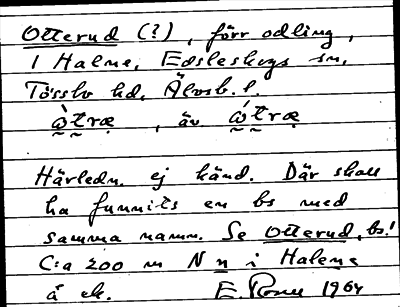 Otterud (?), förr odling,
i Halne, Edsleskogs sn,
Tössbo hd, Älvsb. l.
ò̰t̰ræ , äv ó̰t̰ræ
Härledn. ej känd. Där skall
ha funnits en bs med
samma namn. Se Otterud, bs!
C:a 200 m N n i Halene
å ek. E. 1964